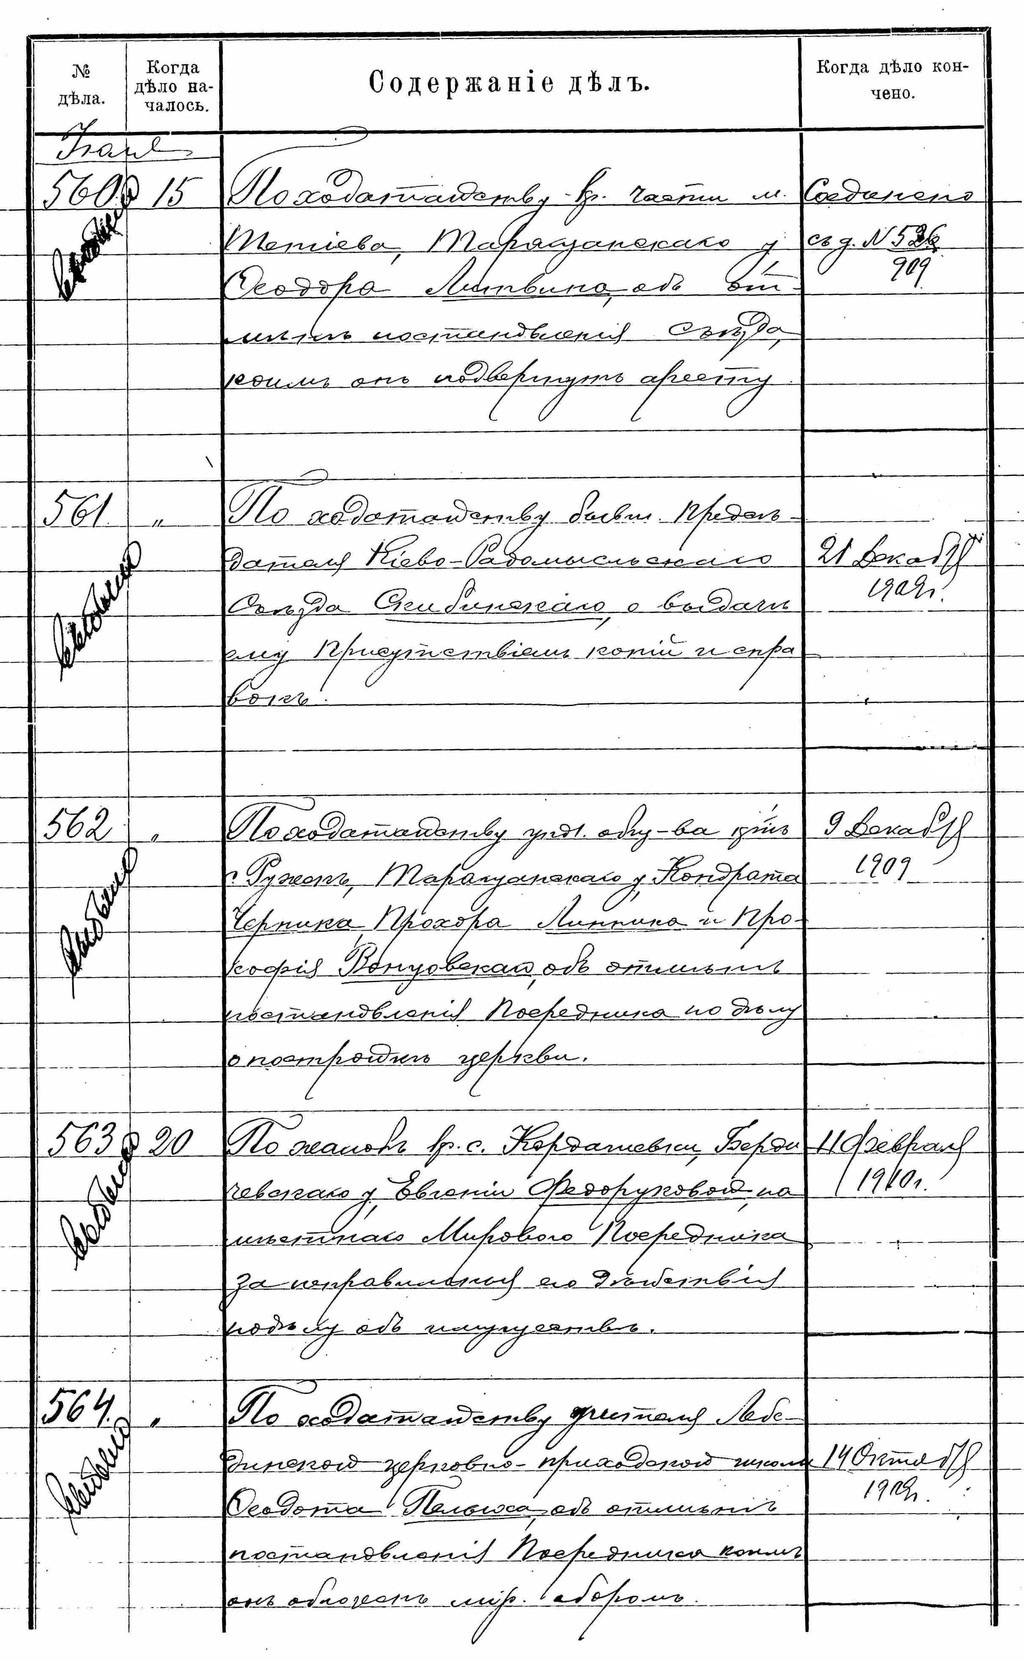 № дѣла.
Когда дѣло на-чалось.
Содержаніе дѣлъ.
Когда дѣло кон-чено.
560
15
По ходатайству кр. части м.
Тетіева, Таращанскаго у
Ѳеодора Литвина, объ от
мѣнѣ постановленія Съѣзда,
коимъ онъ подвергнутъ аресту
Соединено
съ д. N 526
909
561.
"
По ходатайству бывш. Предсѣ-
дателя Кіево-Радомысльскаго
Съѣзда Скибинскаго, о выдачѣ
ему Присутствіемъ копій и спра
вокъ.
21 Декабря
1909г.
562
"
По ходатайству упол. общ-ва крнъ
с. Ружекъ, Таращанскаго у, Кондрата
Черника, Прохора Линника и Про-
кофія, объ отмѣнѣ
постановленія Посредника по дѣлу
о постройкѣ церкви.
9 Декабря
1909
563
20
По жалобѣ кр. с. Кордашевки, Берди
чевскаго у, Евгеніи Федоруковой, на
мѣстнаго Мирового Посредника
за неправильныя его дѣйствія
подѣлу объ имуществѣ.
11 Февраля
1910г.
564.
"
По ходатайству учителя Лебе-
динской церковно-приходской школы
Ѳеодота, объ отмѣнѣ
постановленія Посредника коимъ
онъ обложенъ мір. сборомъ.
14 Октября
1909г.